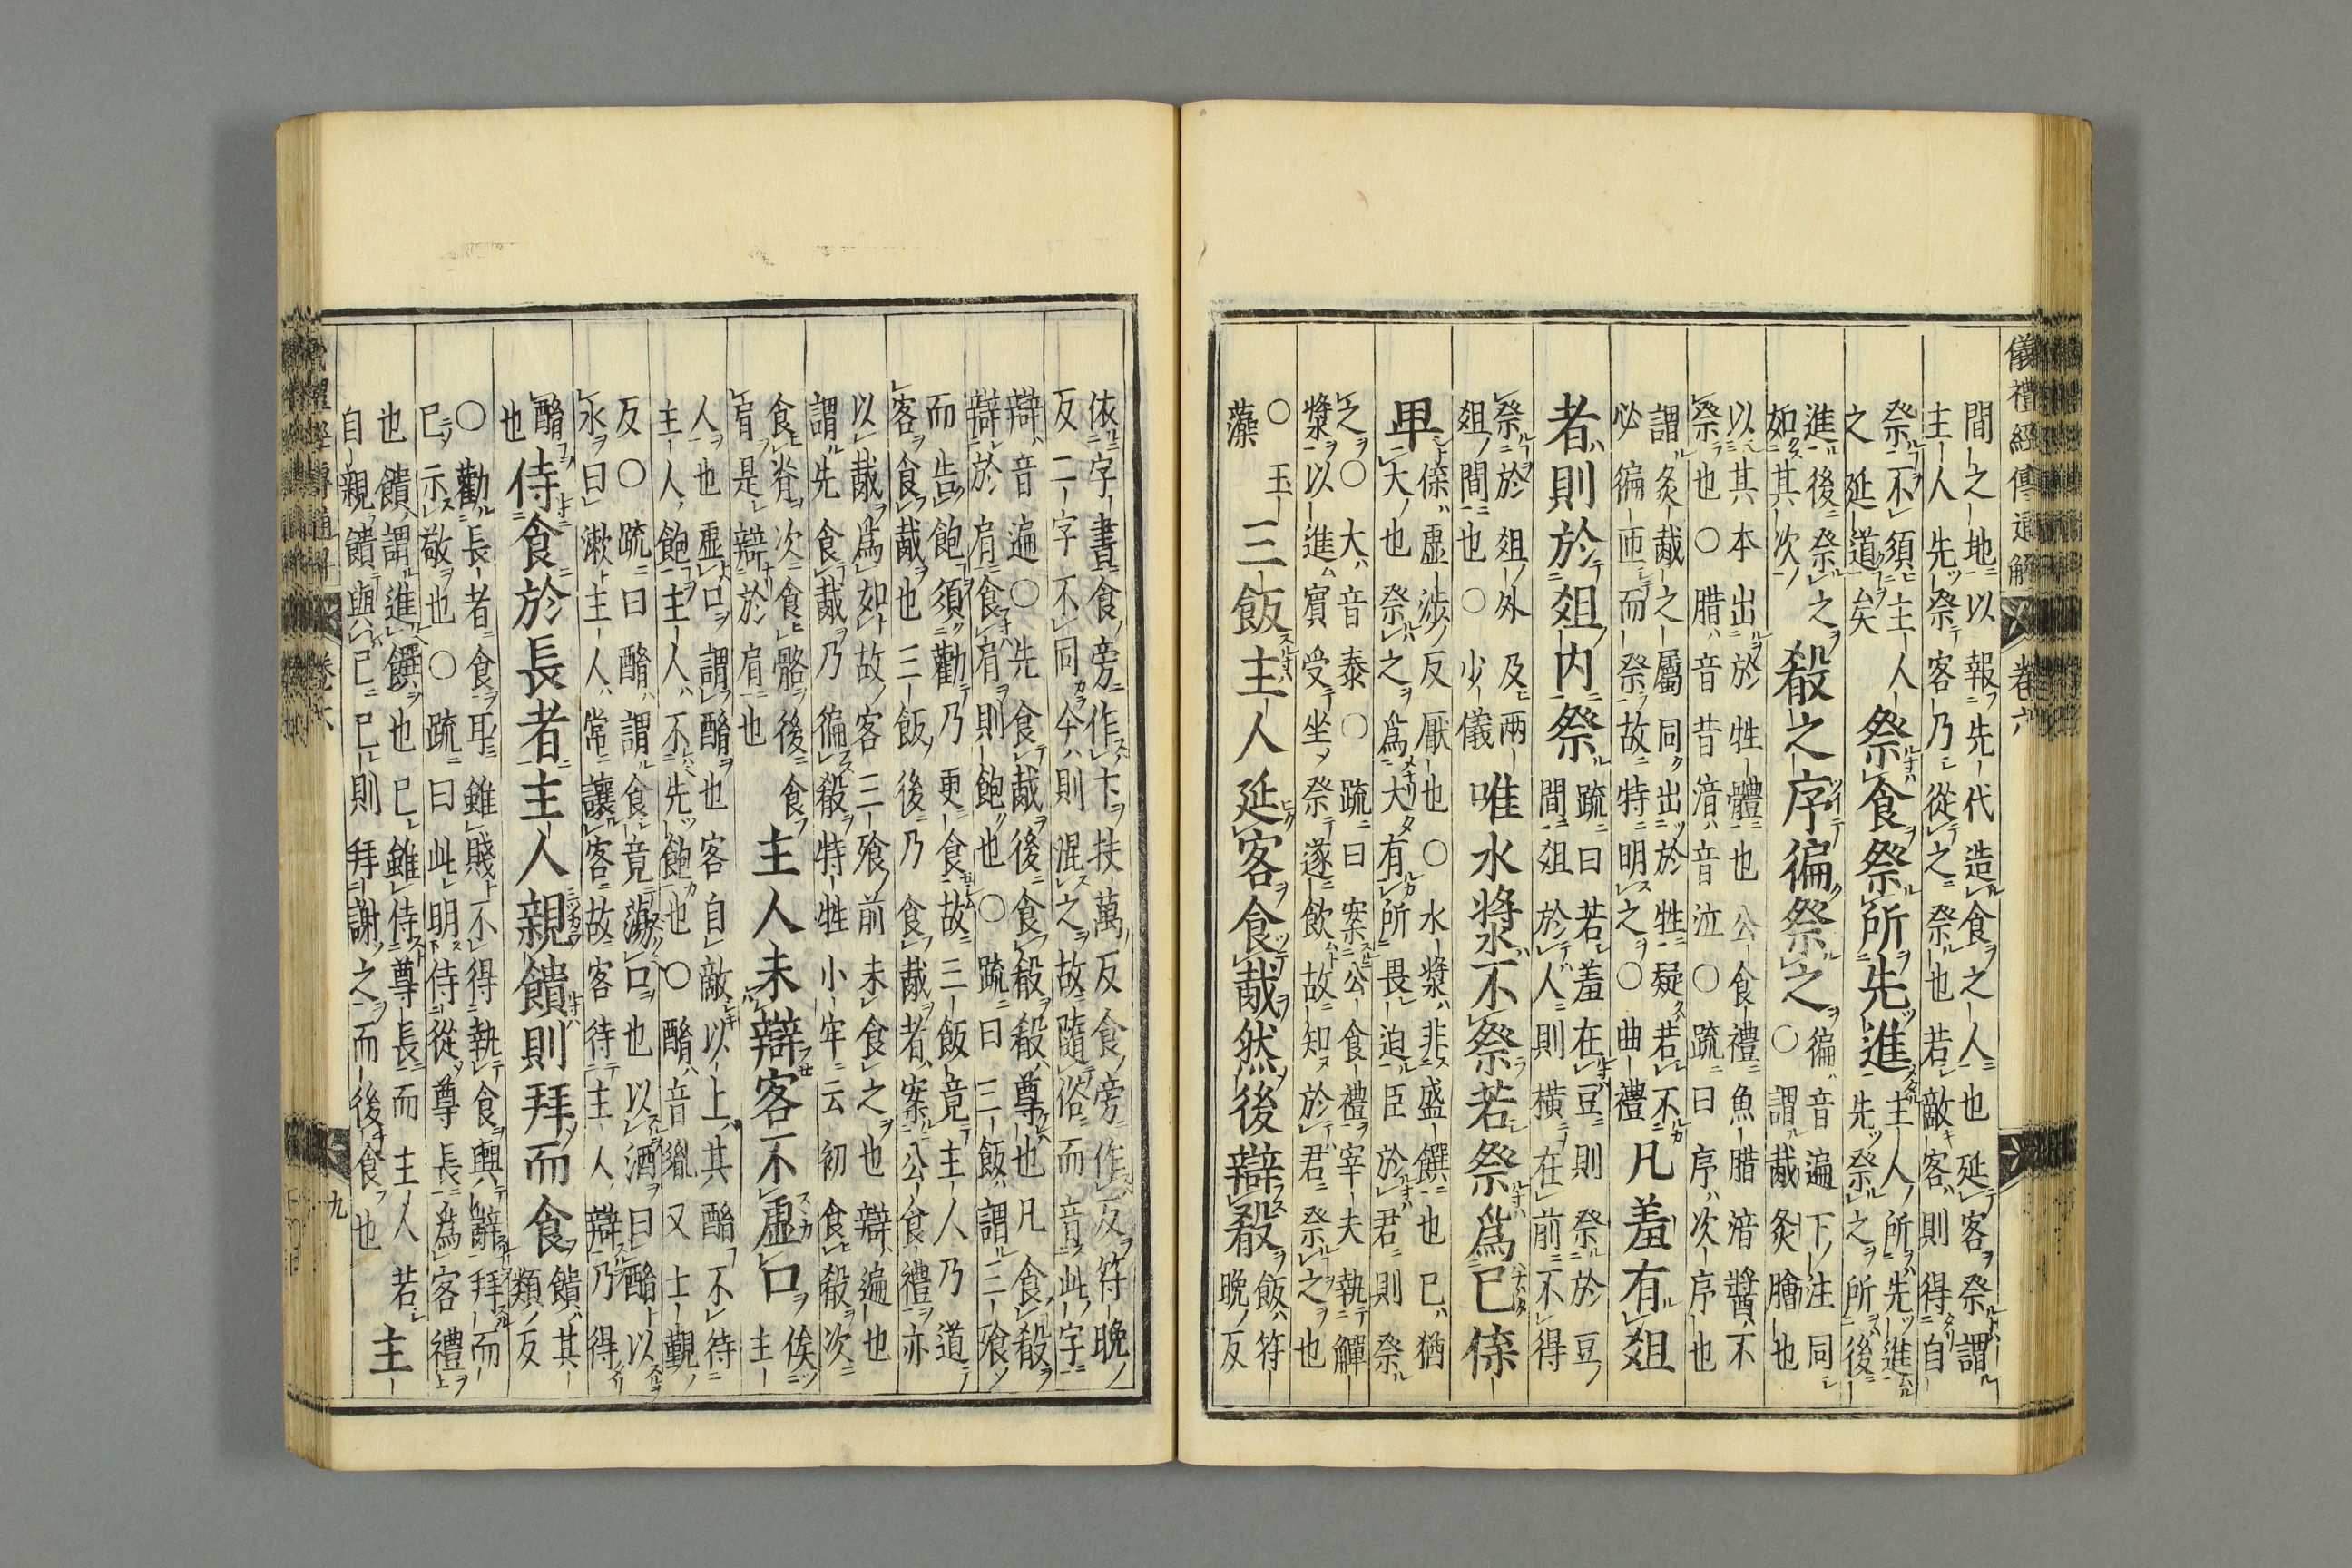 儀禮經傳通解 卷六
間之地以報先代造食之人也延客祭謂
主人先祭客乃從之祭也若敵客則得自
祭不須主人祭食祭所先進主人所先進
之延道矣先祭之所後
進後祭之殽之序徧祭之徧音遍下注同
如其次○謂胾炙膾也
以其本出於牲體也公食禮魚腊湆醬不
祭也○腊音昔湆音泣○疏曰序次序也
謂炙胾之屬同出於牲疑若不
必徧匝而祭故特明之○曲禮凡羞有俎
者則於俎内祭疏曰若羞在豆則祭於豆
間俎於人則横在前不得
祭於俎外及兩
俎間也○少儀唯水漿不祭若祭爲已傣
卑傣虛涉反厭也○水漿非盛饌也已猶
大也祭之爲大有所畏迫臣於君則祭
之○大音泰○疏曰案公食禮宰夫執觶
漿以進賓受坐祭遂飲故知於君祭之也
○玉
藻三飯主人延客食胾然後辯殽飯符
晩反
依字書食旁作卞扶萬反食旁作反符晩
反二字不同今則混之故隨俗而音此字
辯音遍○先食胾後食殽殽尊也凡食殽
辯於肩食肩則飽也○疏曰三飯謂三飱
而告飽須勸乃更食故三飯竟主人乃道
客食胾也三飯後乃食胾者案公食禮亦
以胾爲如故客三飱前未食之也辯遍也
謂先食胾乃徧殽特牲小牢云初食殽次
食脊次食骼後食
肩是辯於肩也主人未辯客不虛口俟主
人也虛口謂酳也客自敵以上其酳不待
主人飽主人不先飽也○酳音胤又士覲
反○疏曰酳謂食竟蕩口也以酒曰酳以
水曰漱主人常讓客故客待主人辯乃得
酳
也侍食於長者主人親饋則拜而食饋其
類反
○勸長者食耳雖賤不得執食興辭拜而
已示敬也○疏曰此明侍從尊長爲客禮
也饋謂進饌也已雖侍尊長而主人若主
自親饋與己己則拜謝之而後食也
卷六 九